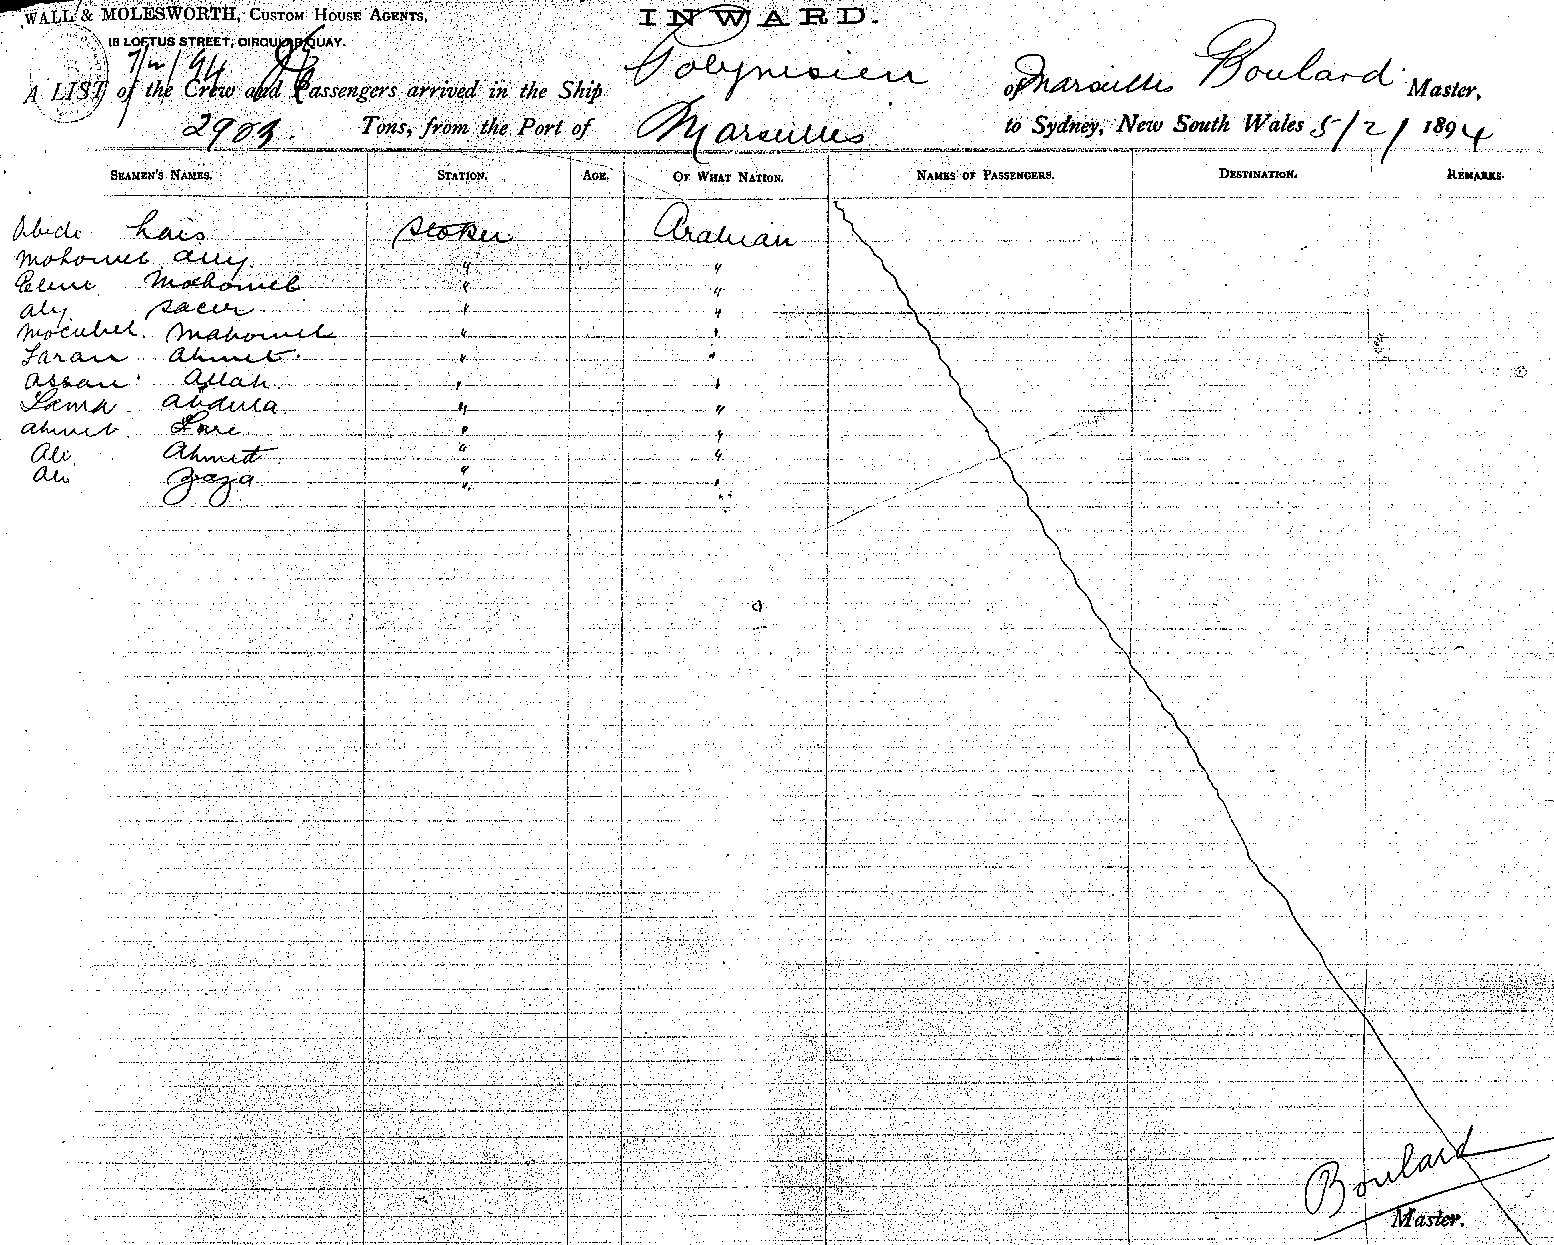 WALL & MOLESWORTH, CUSTOM HOUSE AGENTS,
INWARD.
18 LOFTUS STREET, CIRCULAR QUAY.
7/2/94
A LIST of the Crew and Passengers arrived in the Ship Polynesien of Marseilles Boulard Master,
2903. Tons, from the Port of Marseilles to Sydney, New South Wales 5/2/1894
SEAMEN'S NAMES. STATION. AGE. OF WHAT NATION. NAMES OF PASSENGERS. DESTINATION. REMARKS.
Abede Lais Stoker Arabian
Mohomet Ally " "
Mahomet " "
Aly Sacer " "
Mahomet " "
Saran Ahmet " "
Assan Allah " "
Sama Abdula " "
Ahmet " "
Ali Ahmett " "
Ali Zaza " "
" "
Boulard
Master.